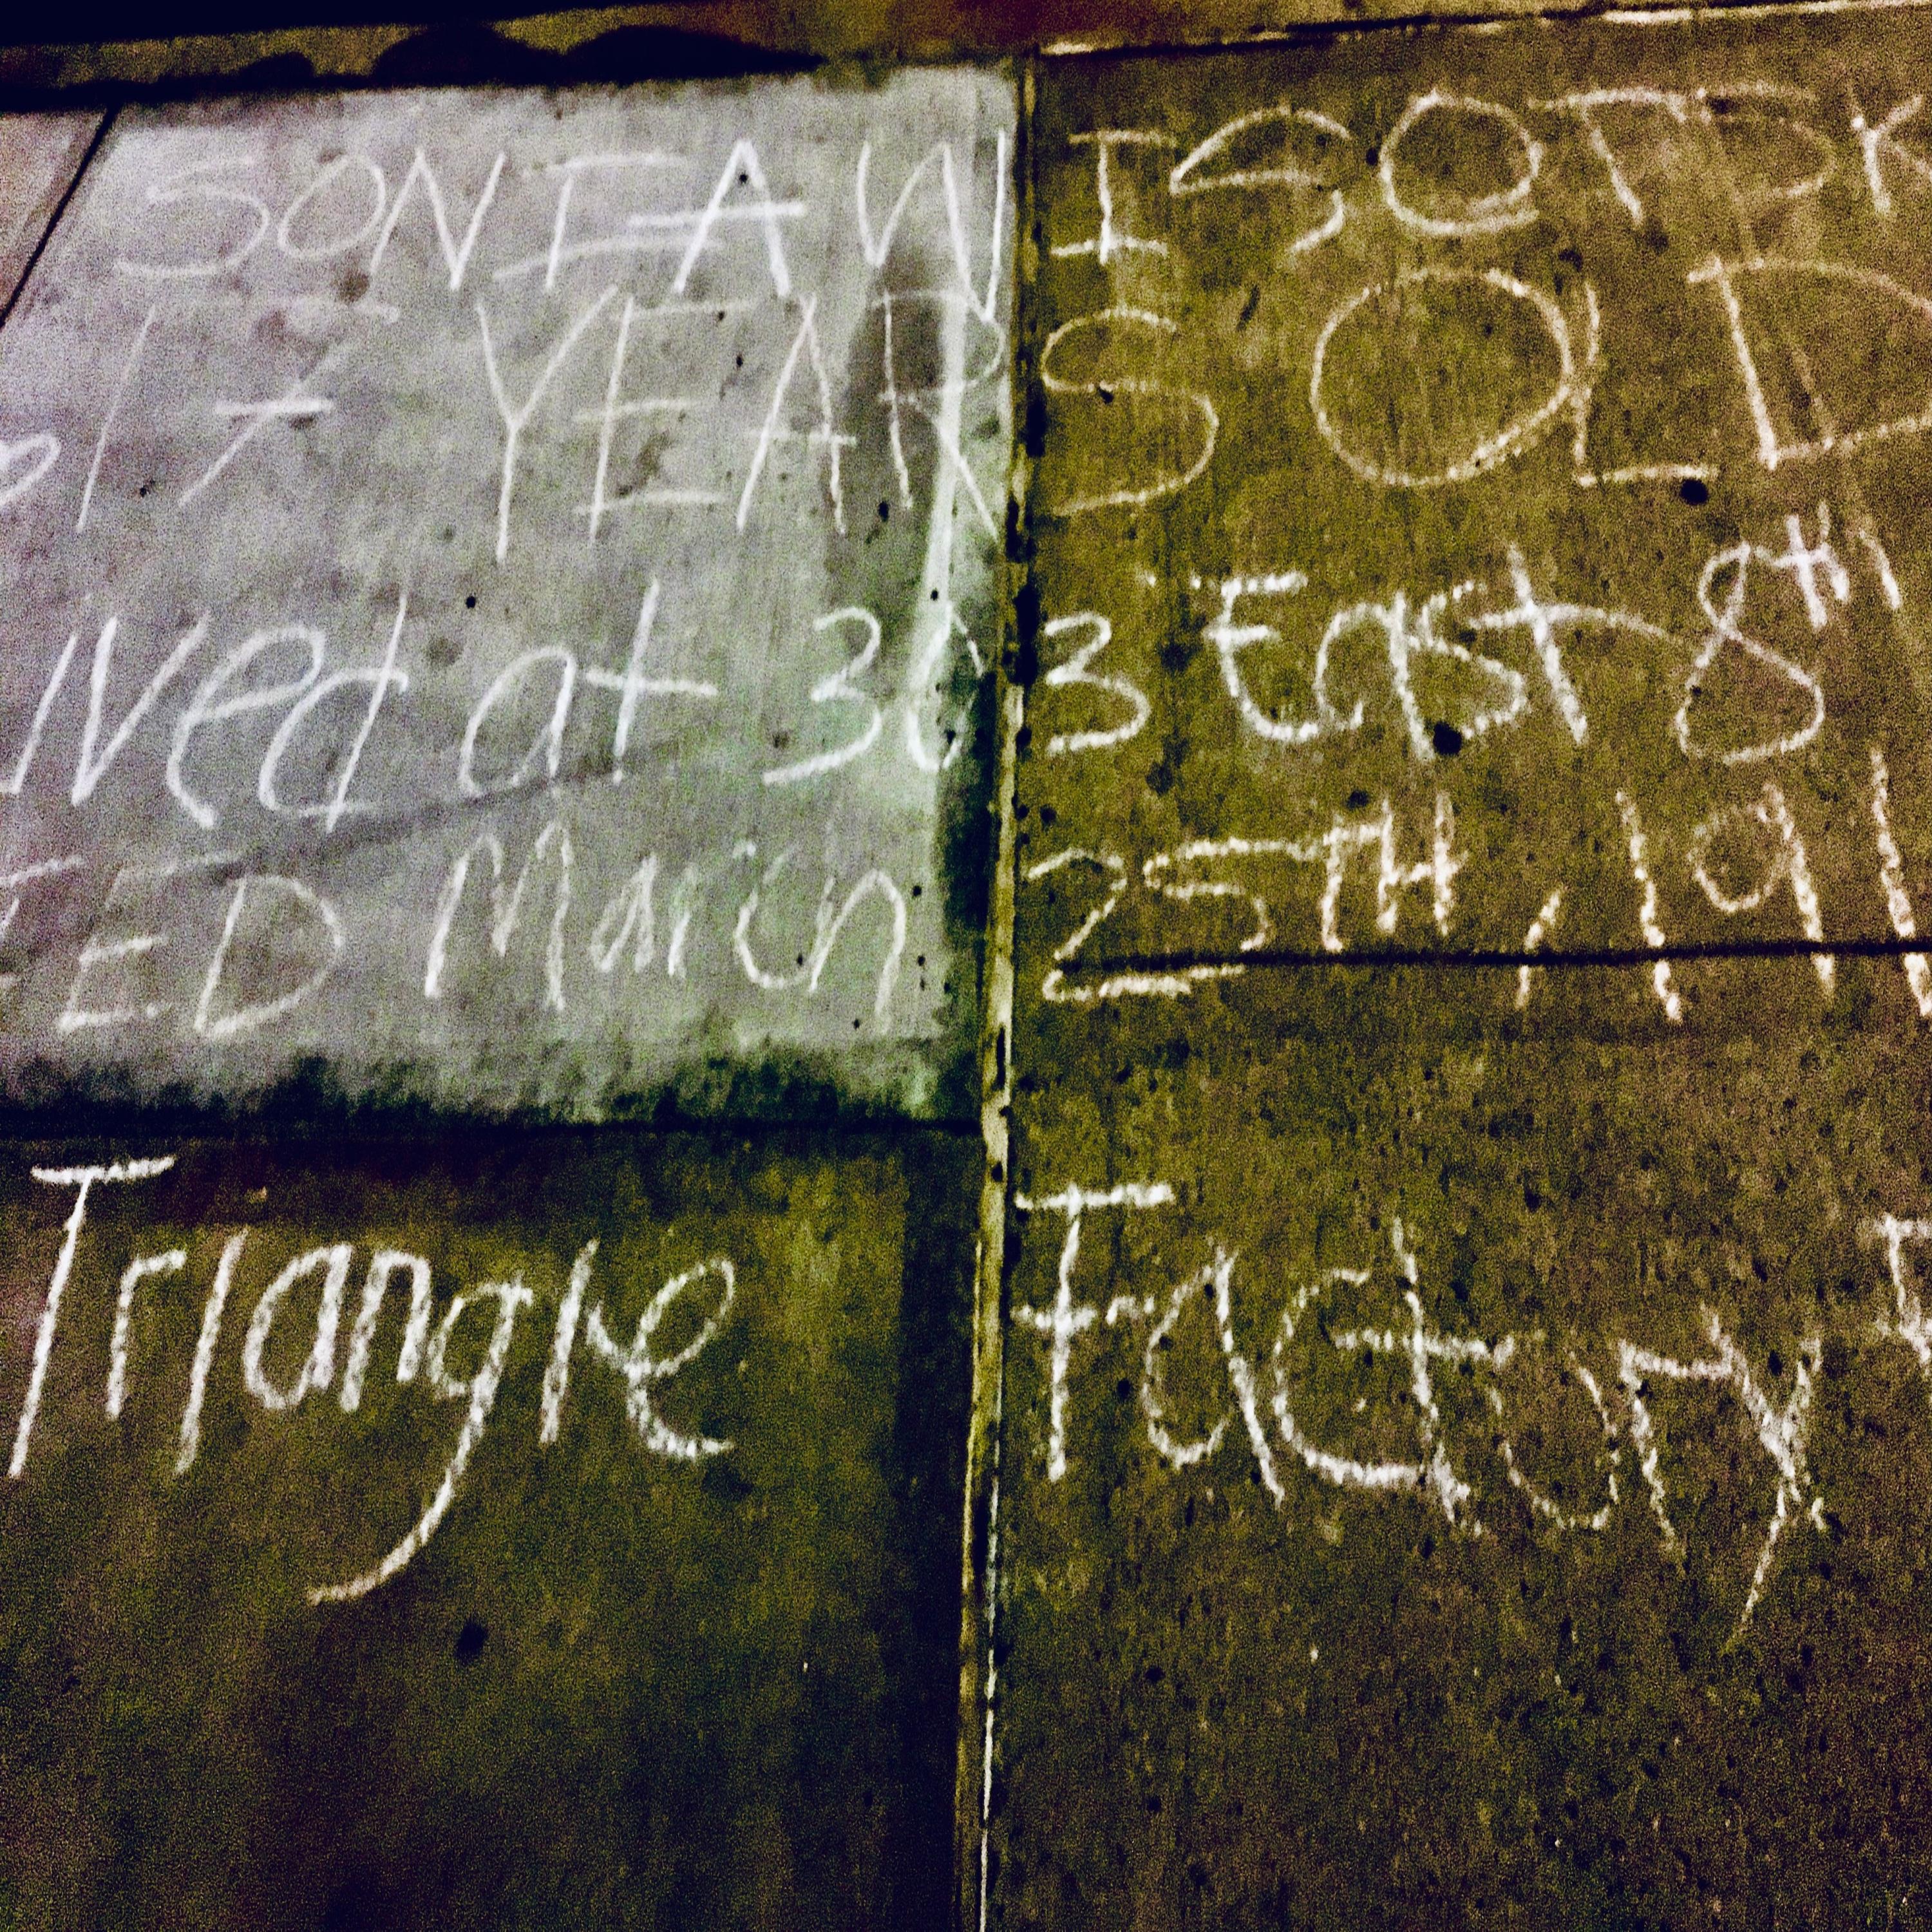 SONIA WISOTSK
17 YEARS OLD
ived at 303 East 8th
IED March 25TH, 191
Triangle Factory F